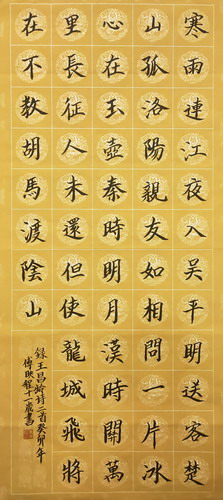 寒雨連江夜入吳平明送客楚
山孤洛陽親友如相問一片冰
心在玉壺秦時明月漢時關萬
里長征人未還但使龍城飛將
在不教胡馬渡陰山
錄王昌齡詩二首癸卯年
傅映十一歲書